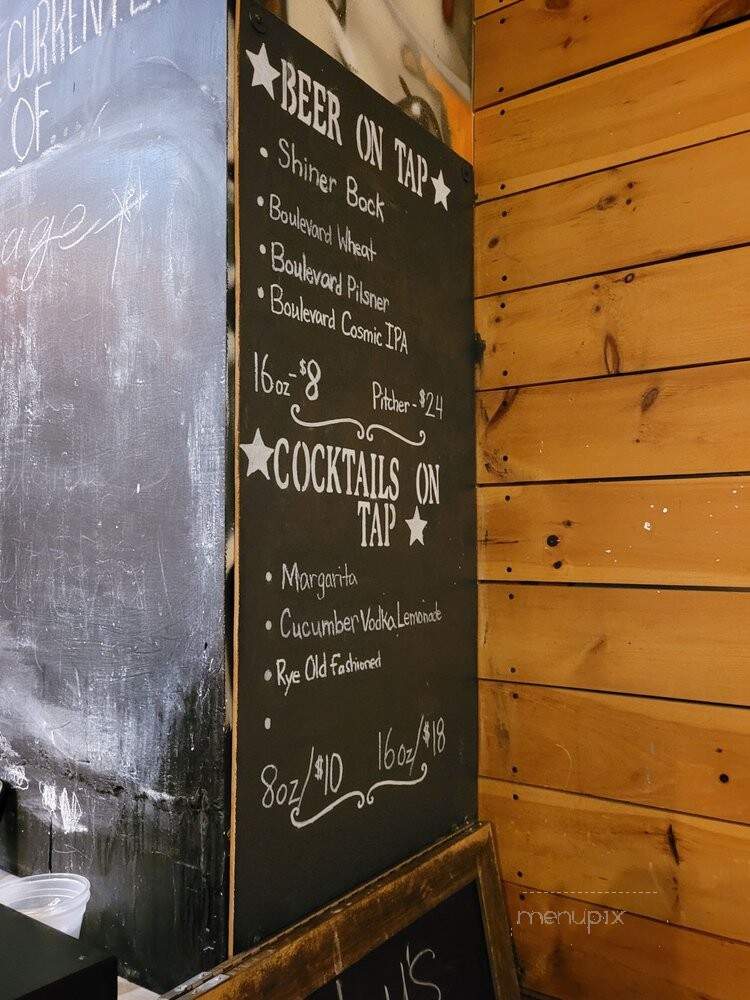 CURRENT
OF...
BEER ON TAP
• Shiner Bock
• Boulevard Wheat
• Boulevard Pilsner
• Boulevard Cosmic IPA
16oz-$8 Pitcher-$24
COCKTAILS ON
TAP
• Margarita
• Cucumber Vodka Lemonade
• Rye Old Fashioned
•
8oz/$10 16oz/$18
menupix